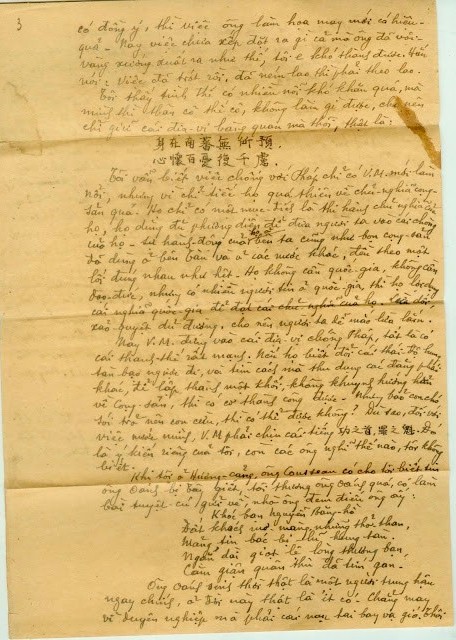 3
có đồng ý, thì việc ông làm hoa may mới có hiệu-
quả - Nay việc chưa xếp đặt ra gì cả mà ông đã vội-
vàng xướng xuất ra như thế, tôi e khó thắng được. Hắn
nói: việc đã trót rồi, đã nem lao thì phải theo lao.
Tôi thấy tình thế có nhiều nỗi khó khăn quá, mà
mình thì thân cô thế cô, không làm gì được, cho nên
chỉ giữ cái địa-vị bàng quan mà thôi, thật là:
身在南蕃無所預.
心懷百憂復千慮.
Tôi vẫn biết việc chống với Pháp chỉ có V.M. mới làm
nổi, nhưng vì chỉ hiềm họ quá thiên về chủ-nghĩa cộng-
sản quá. Họ chỉ có một mục-đích là thi hành chủ nghĩa của
họ, họ dùng đủ phương-diện để đưa người ta vào cái chòng
của họ - sự hành-động của bên ta cũng như bọn cộng-sản
đã dùng ở bên bàn và ở các nước khác, đều theo một
lối đúng nhau như hệt. Họ không cần quốc-gia, không cần
đạo-đức, nhưng có nhiều người tin ở quốc-gia, thì họ lợi dụng
cái nghĩa quốc-gia để đạt cái chủ nghĩa của họ.
xảo quyệt đủ đường, cho nên người ta dễ mắc lừa lầm.
Nay V.M. đứng vào cái địa vị chống Pháp, tất là có
cái thanh-thế rất mạnh. Nếu họ biết đổi cái thái-độ hung
tàn bạo ngược đi, và tìm cách mà thu dụng các đảng phái
khác, để lập thành một khối, không khuynh hướng hẳn
về Cộng-sản, thì có cơ thành công được. Nhưng báo con chó
sói trở nên con cừu, thì có thể được không? Dù sao, đối với
việc nước mình, V.M phải chịu cái tiếng 功之首, 罪之魁. Đó
là ý kiến riêng của tôi, còn các ông nghĩ thế nào, tôi không
biết.
Khi tôi ở Hương-cảng, ông Cousseau có cho tôi biết tin
ông Sáng bị đây giết, tôi thương ông Sáng quá, có làm
bài tuyệt-cú, gửi về nhờ ông đem điếu ông ấy:
Khóc bạn Nguyễn Văn-
Đất khách mơ-màng những thở than,
Mảng tin bác bị chúng tàn.
Ngắn dài giọt lệ lòng thương bạn,
Căm giận quân thù dạ tím gan.
Ông Sáng sinh thời thật là một người trung hậu
ngay chính, ở đời này thật là ít có. Chẳng may
vì duyên nghiệp mà phải cái nạn tai bay vạ gió. Thôi